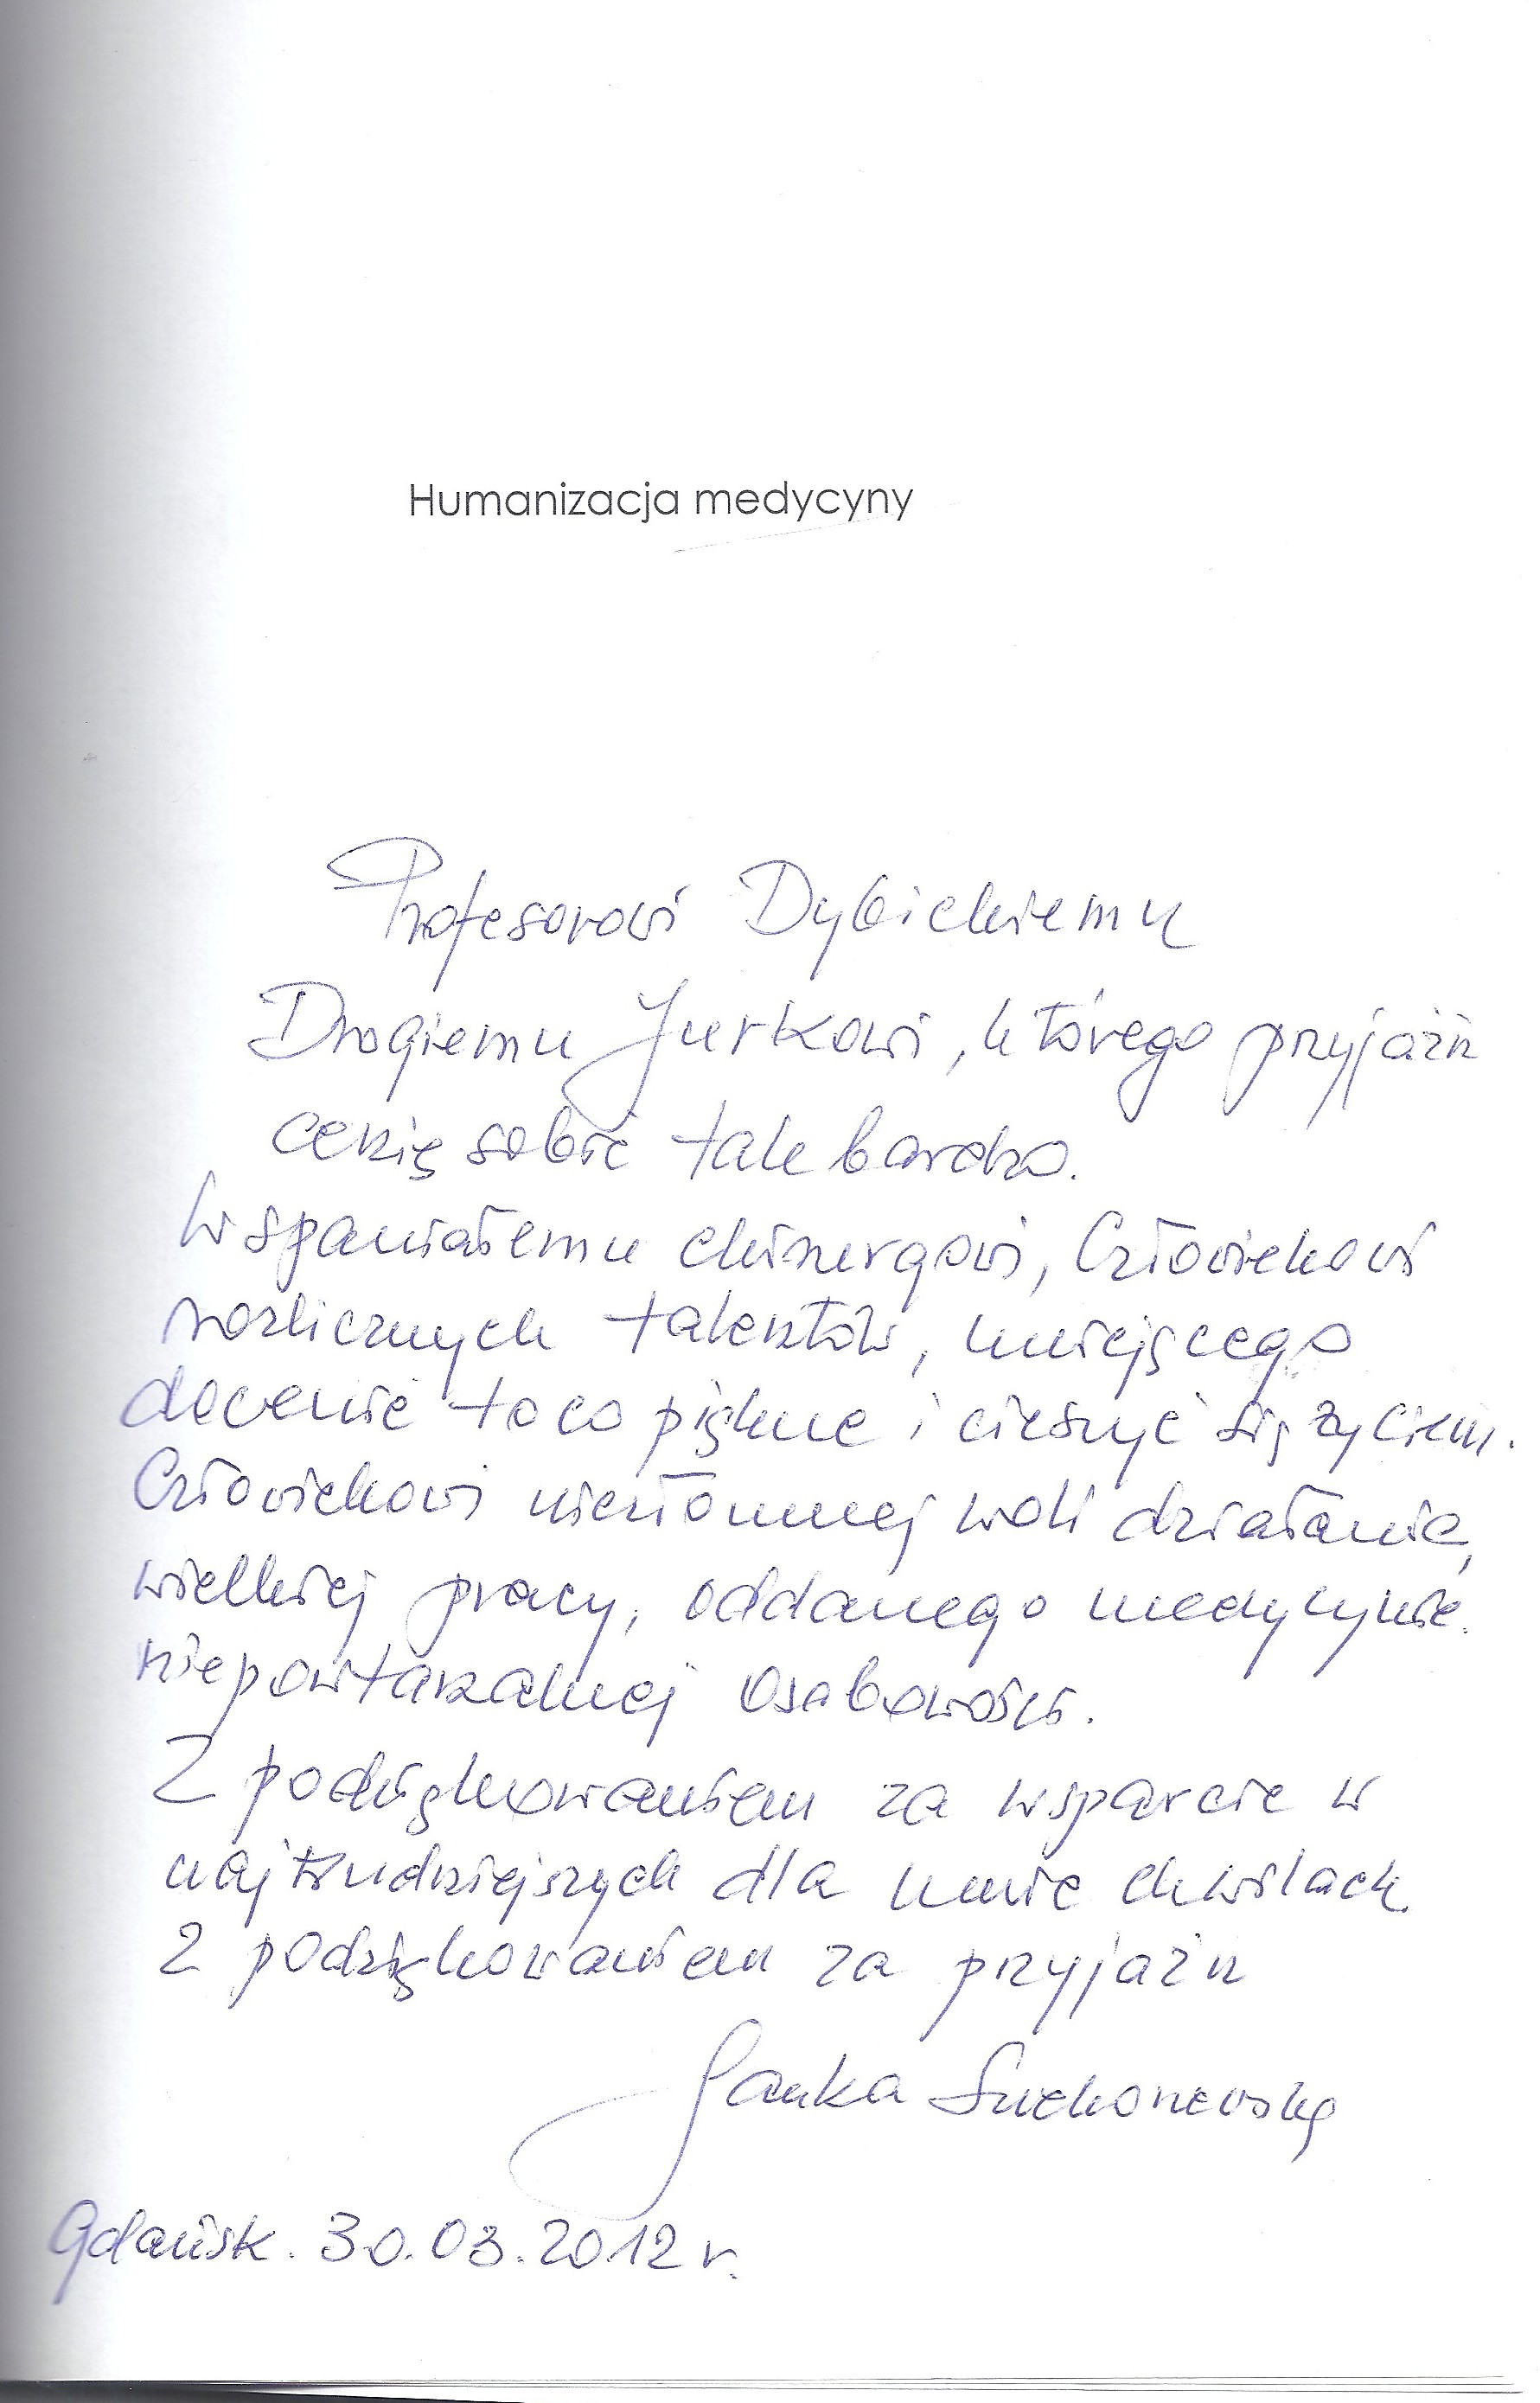 Humanizacja medycyny
Profesorowi Dybickiemu
Drogiemu Jurkowi, którego przyjaźń
cenię sobie tak bardzo.
Wspaniałemu chirurgowi, Człowiekowi
rozlicznych talentów, umiejącego
docenić to co piękne i cieszyć się życiem.
Człowiekowi niezłomnej woli działania,
wielkiej pracy, oddanego medycynie.
niepowtarzalnej osobowości.
Z podziękowaniem za wsparcie w
najtrudniejszych dla mnie chwilach
Z podziękowaniem za przyjaźń
Janka Suchorzewska
Gdańsk. 30.03.2012 r.